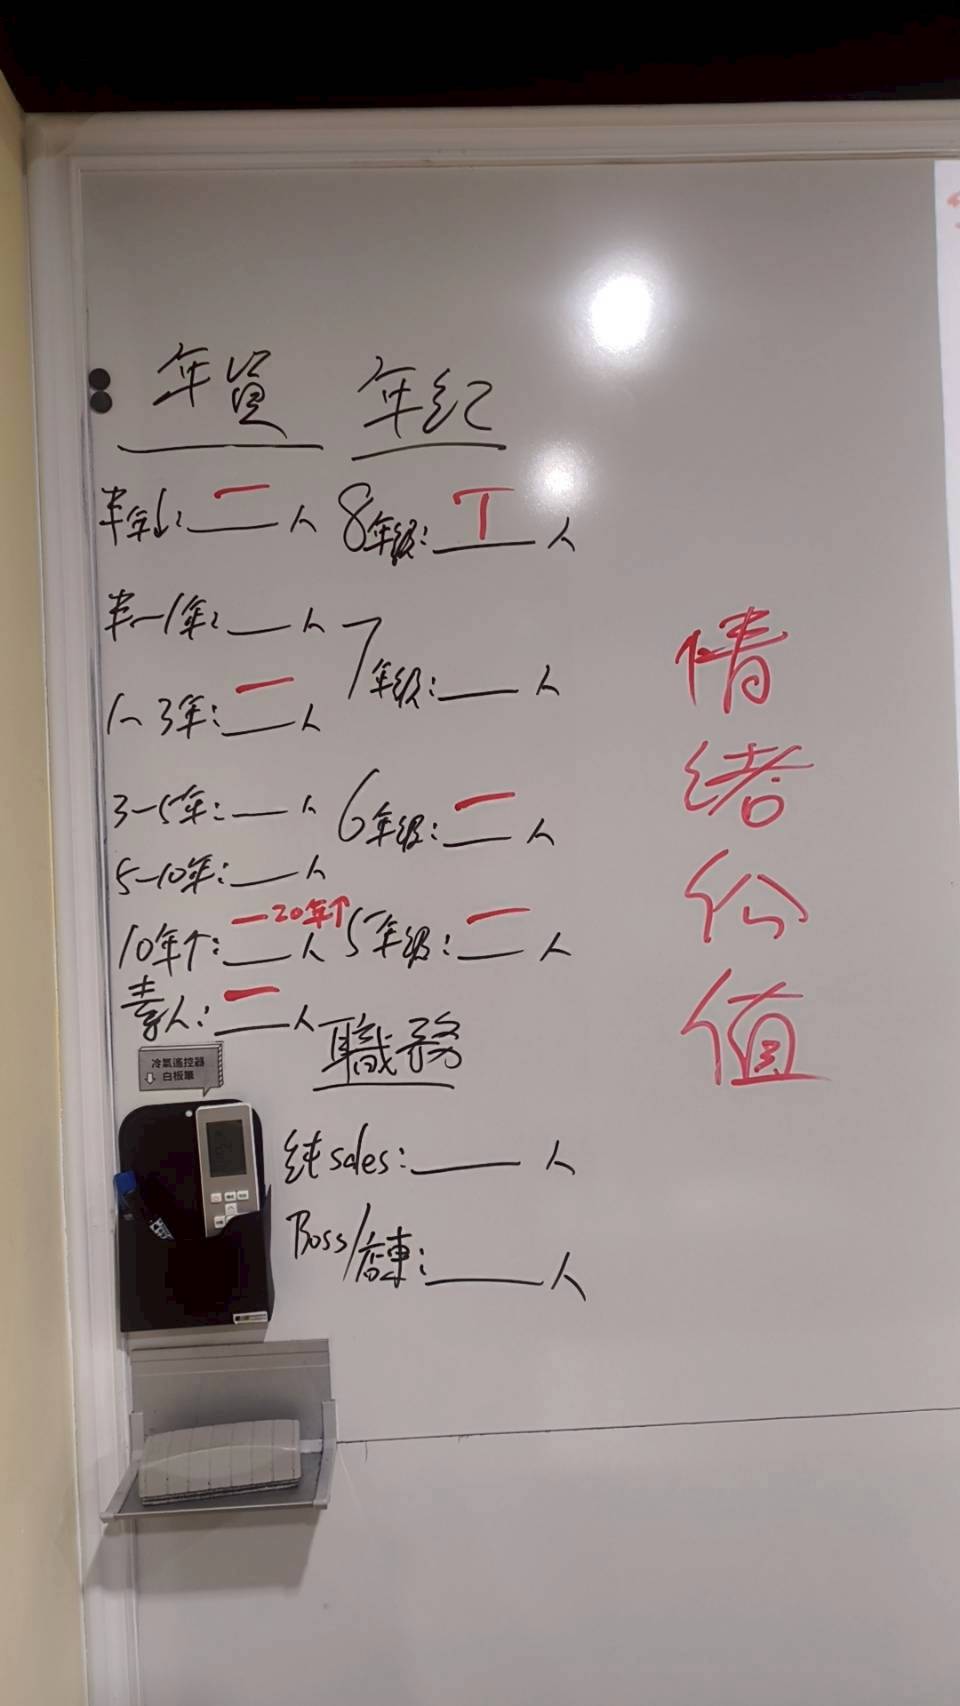 年資 年紀
半年↓: 一 人 8年級: 丅 人
半~1年: 人 7年級: 人
1~3年: 一 人
3-5年: 人 6年級: 一 人
5-10年: 人
10年↑: 一20年↑ 人 5年級: 一 人
素人: 一 人
職務
純sales: 人
Boss/店東: 人
情
緒
价
值
冷氣遙控器
↓ 白板筆